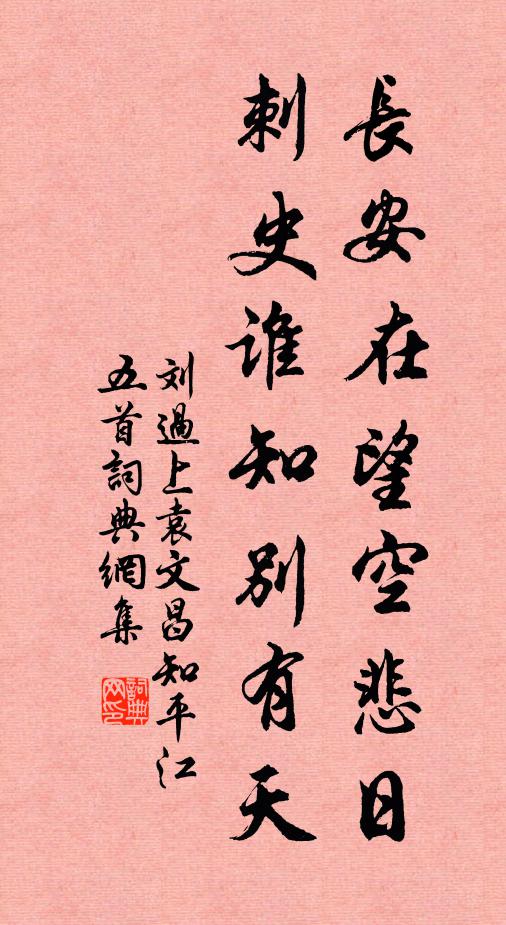 長安在望空悲日
刺史誰知別有天
刘過上袁文昌知平江
五首詞典網集
詞典
网印